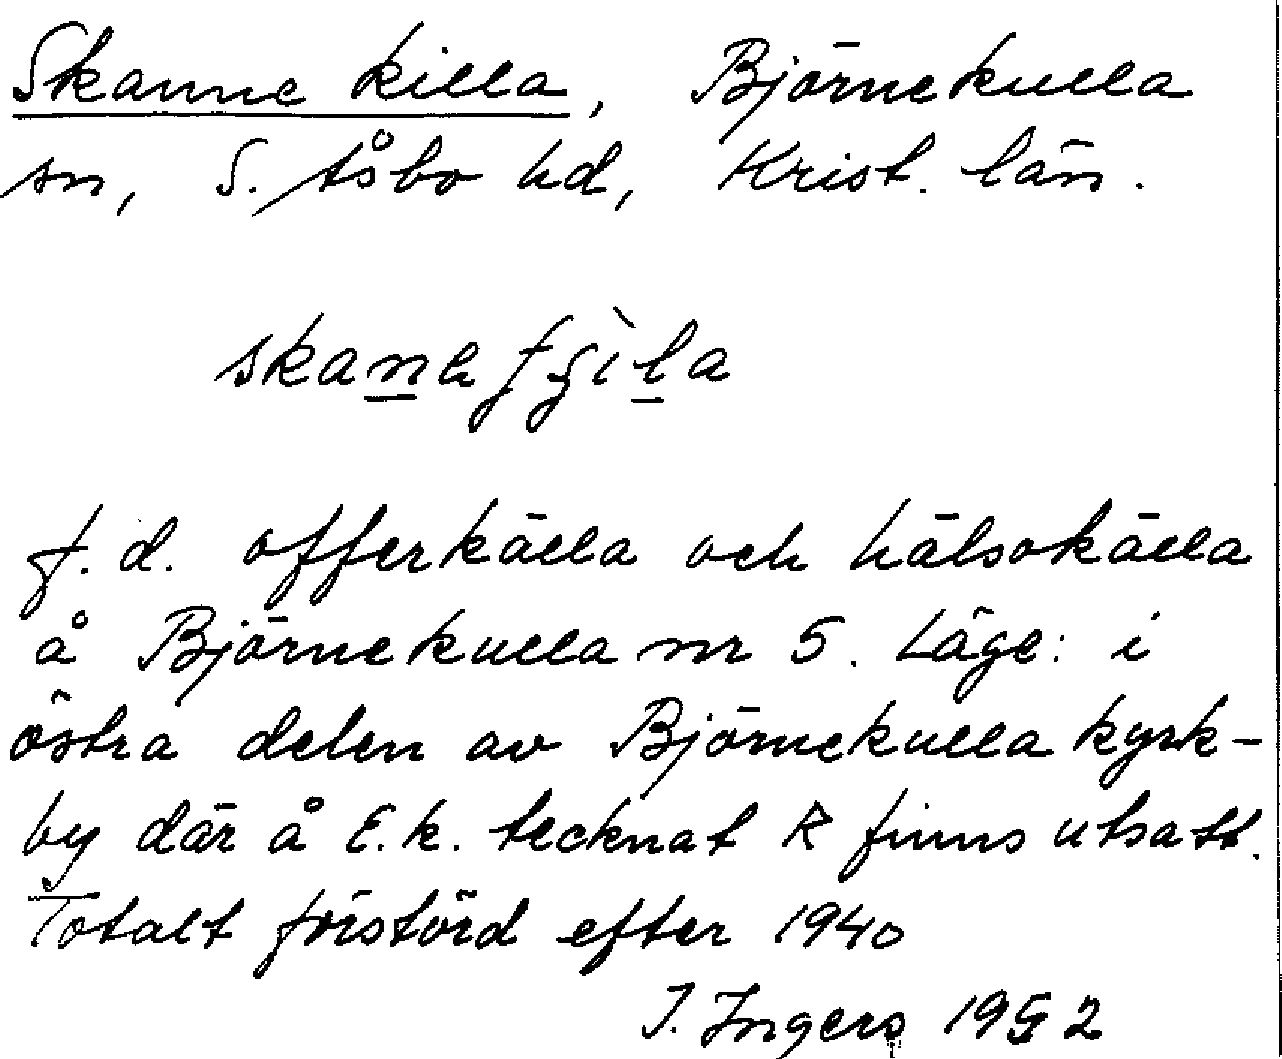 Skanne killa, Björnekulla
sn, S. Åsbo hd, Krist. län.
f.d. offerkälla och hälsokälla
å Björnekulla nr 5. Läge: i
östra delen av Björnekulla kyrk-
by där å E.k. tecknat R finns utsatt.
Totalt förstörd efter 1940
I. Ingers 1952